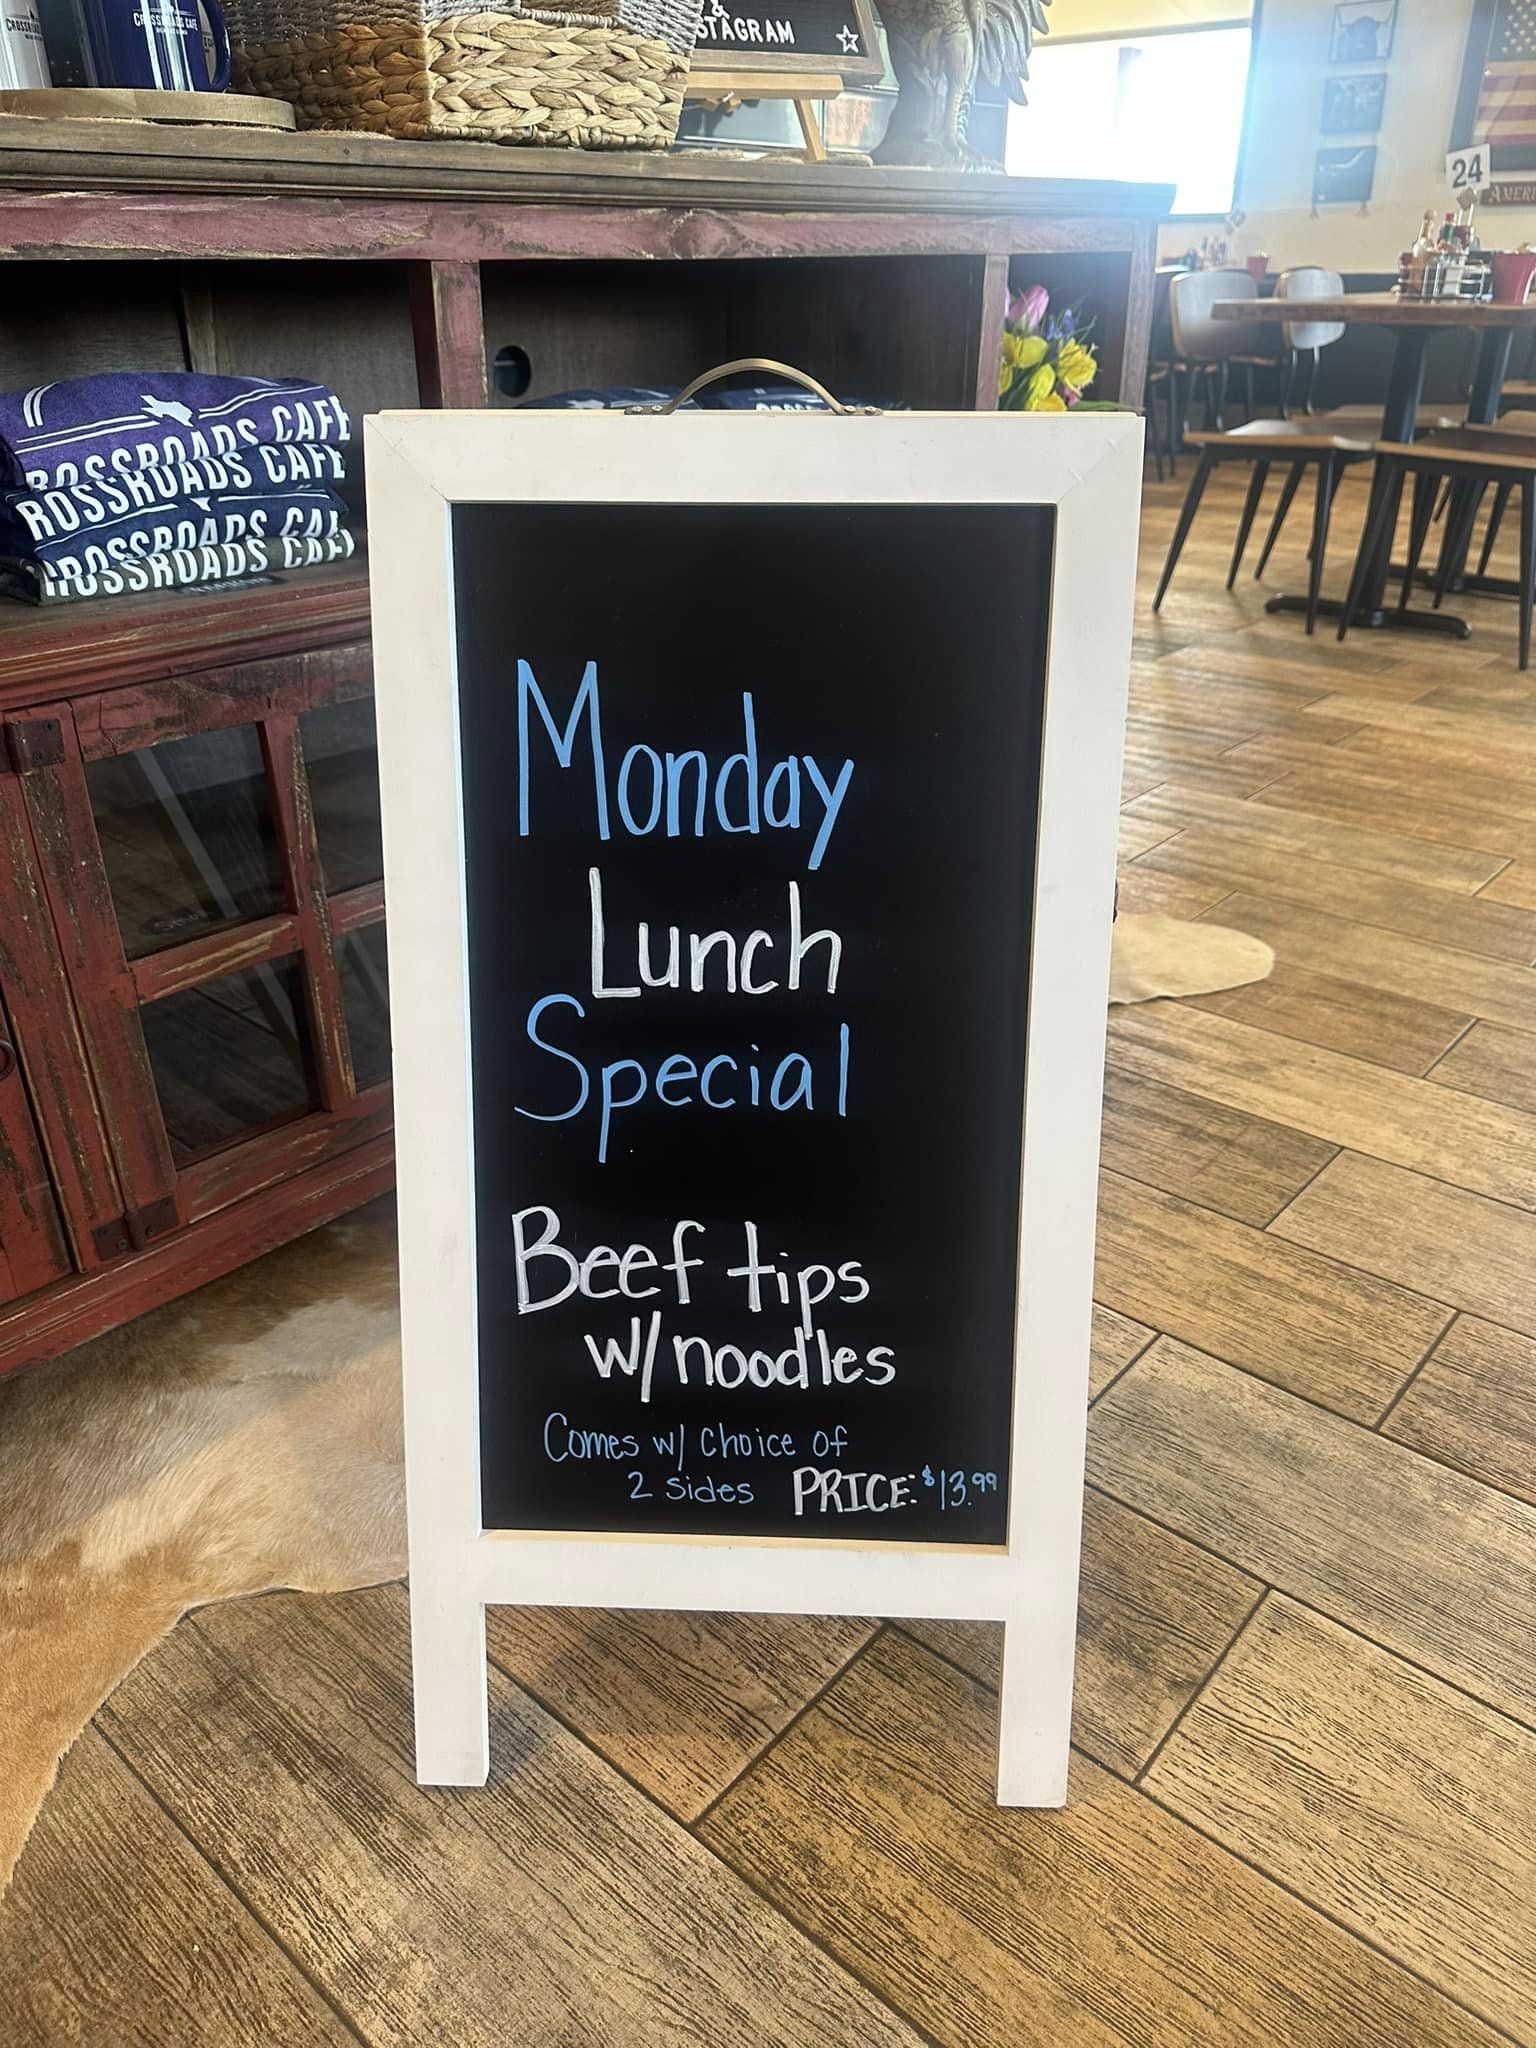 CROSSROADS CAFE
&
STAGRAM
24
AMERI
CROSSROADS CAFE
ROSSROADS CAFE
ROSSROADS CAF
CROSSROADS CAF
Monday
Lunch
Special
Beef tips
w/noodles
Comes w/ choice of
2 sides PRICE: $13.99